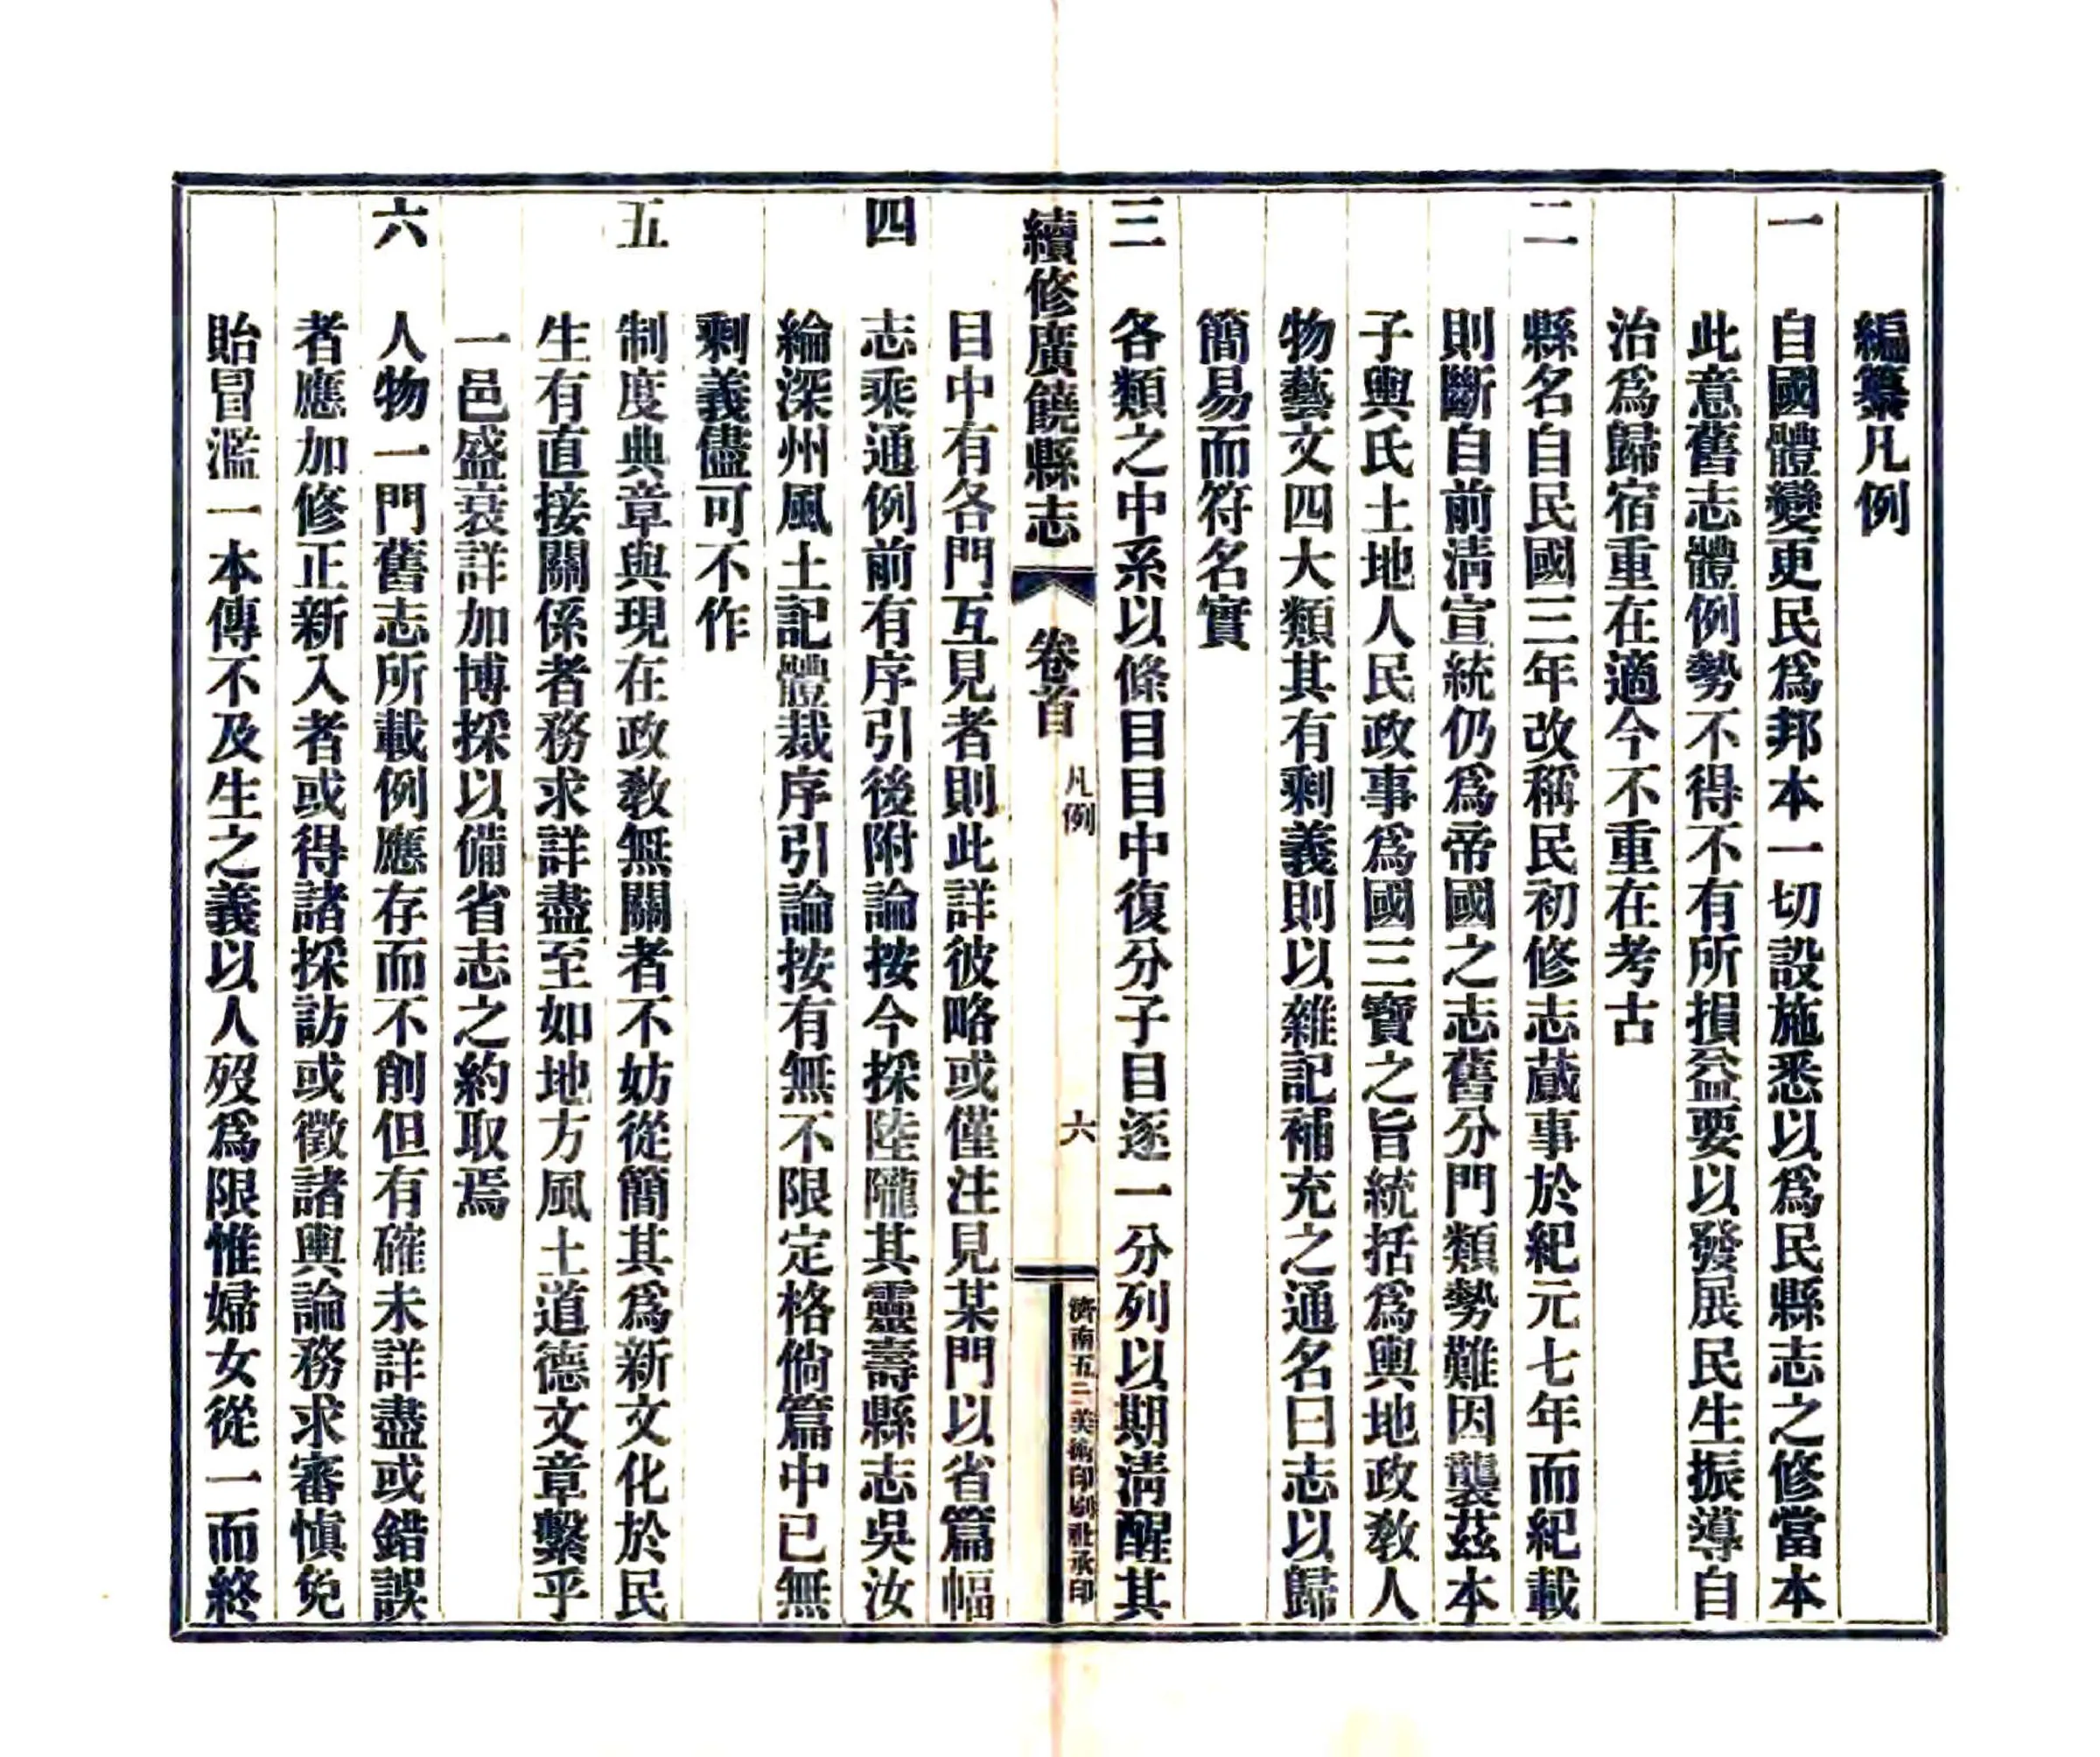 編纂凡例
一　自國體變更民爲邦本一切設施悉以爲民縣志之修當本
此意舊志體例勢不得不有所損益要以發展民生振導自
治爲歸宿重在適今不重在考古
二　縣名自民國三年改稱民初修志蕆事於紀元七年而紀載
則斷自前淸宣統仍爲帝國之志舊分門類勢難因襲茲本
子輿氏土地人民政事爲國三寶之旨統括爲輿地政敎人
物藝文四大類其有剩義則以雜記補充之通名曰志以歸
簡易而符名實
三　各類之中系以條目目中復分子目逐一分列以期淸醒其
續修廣饒縣志　卷首　凡例　六　濟南五三美術印刷社承印
目中有各門互見者則此詳彼略或僅注見某門以省篇幅
四　志乘通例前有序引後附論按今採陸隴其靈壽縣志吳汝
綸深州風土記體裁序引論按有無不限定格倘篇中已無
剩義儘可不作
五　制度典章與現在政敎無關者不妨從簡其爲新文化於民
生有直接關係者務求詳盡至如地方風土道德文章繫乎
一邑盛衰詳加博採以備省志之約取焉
六　人物一門舊志所載例應存而不削但有確未詳盡或錯誤
者應加修正新入者或得諸採訪或徵諸輿論務求審愼免
貽冒濫一本傳不及生之義以人歿爲限惟婦女從一而終